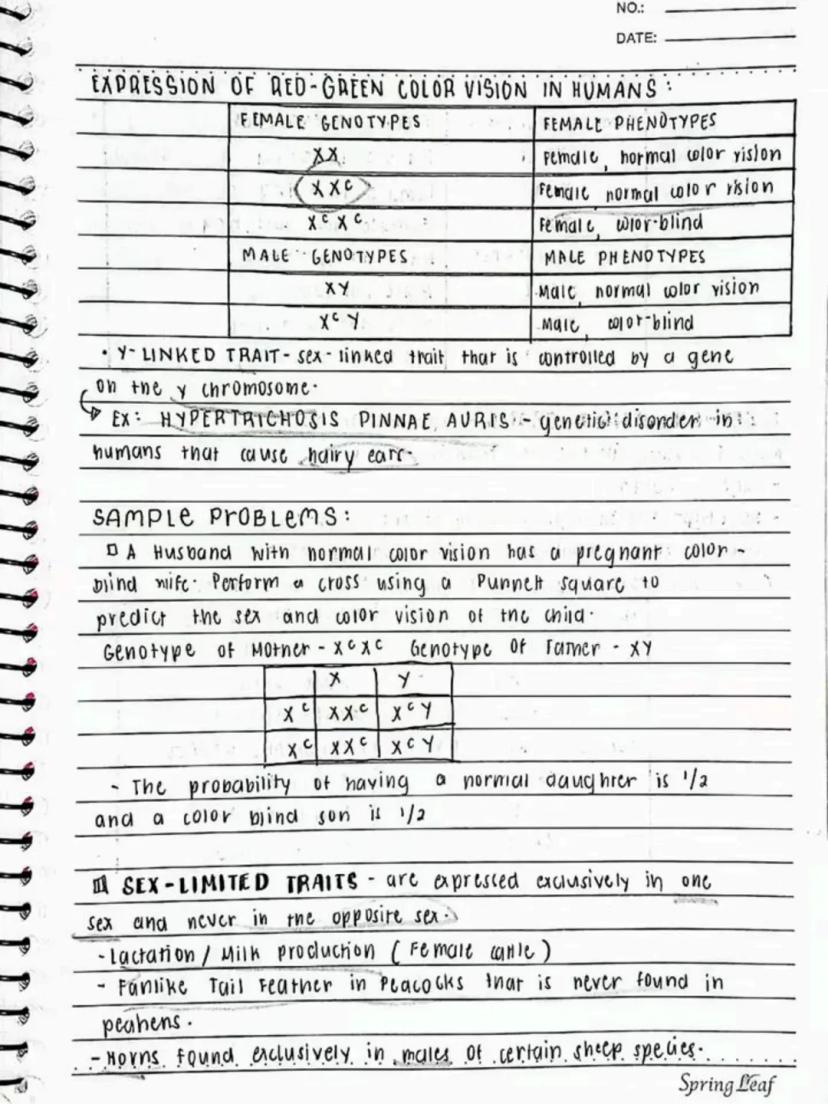 NO.:
DATE:
EXPRESSION OF RED-GREEN COLOR VISION IN HUMANS:
FEMALE GENOTYPES FEMALE PHENOTYPES
XX Female, normal color vision
XXᶜ Female, normal color vision
XᶜXᶜ Female, color-blind
MALE GENOTYPES MALE PHENOTYPES
XY Male, normal color vision
XᶜY Male, color-blind
• Y-LINKED TRAIT - sex-linked trait that is controlled by a gene
on the y chromosome.
EX: HYPERTRICHOSIS PINNAE AURIS - genetic disorder in
humans that cause hairy ears.
SAMPLE PROBLEMS:
□ A Husband with normal color vision has a pregnant color-
blind wife. Perform a cross using a Punnett square to
predict the sex and color vision of the child.
Genotype of Mother - XᶜXᶜ Genotype of Father - XY
X Y
Xᶜ XXᶜ XᶜY
Xᶜ XXᶜ XᶜY
- The probability of having a normal daughter is 1/2
and a color blind son is 1/2
SEX-LIMITED TRAITS - are expressed exclusively in one
sex and never in the opposite sex.
- Lactation / Milk production (Female cattle)
- Fanlike Tail Feather in Peacocks that is never found in
peahens.
- Horns found exclusively in males of certain sheep species.
Spring Leaf